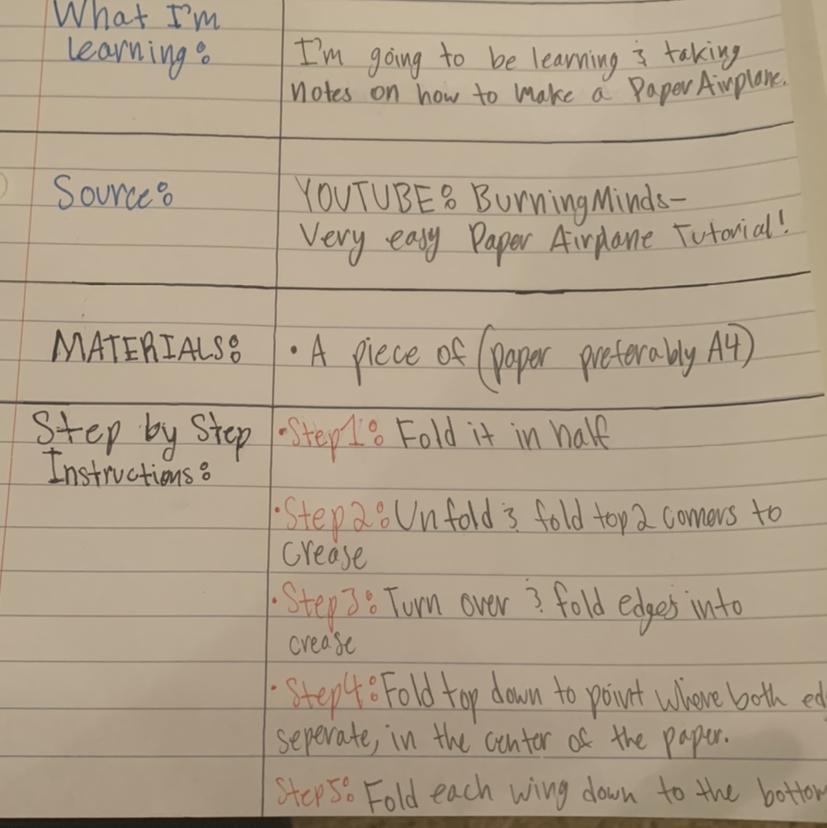 What I'm
learning:
I'm going to be learning & taking
notes on how to make a Paper Airplane.
Source:
YOUTUBE: BurningMinds-
Very easy Paper Airplane Tutorial!
MATERIALS:
• A piece of (paper preferably A4)
Step by Step
Instructions:
• Step 1: Fold it in half
• Step 2: Unfold & fold top 2 corners to
crease
• Step 3: Turn over & fold edges into
crease
• Step 4: Fold top down to point where both
seperate, in the center of the paper.
Step 5: Fold each wing down to the bottom